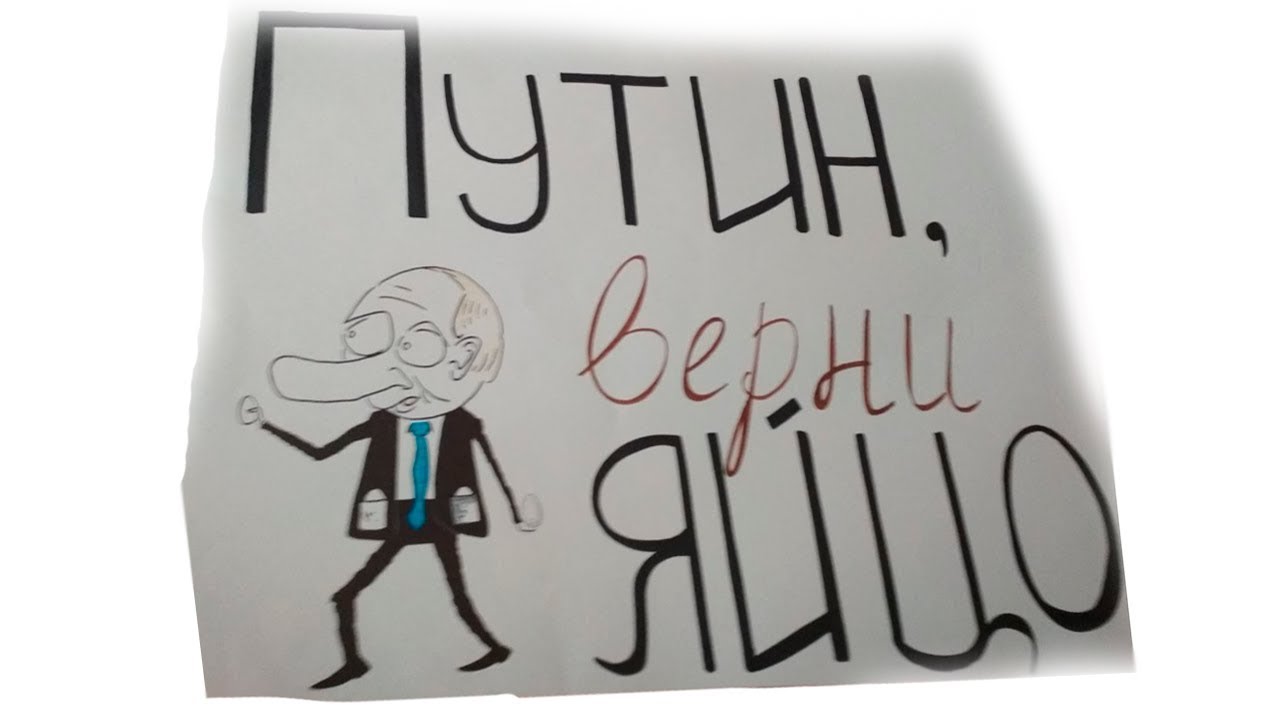 Путин,
верни
яйцо